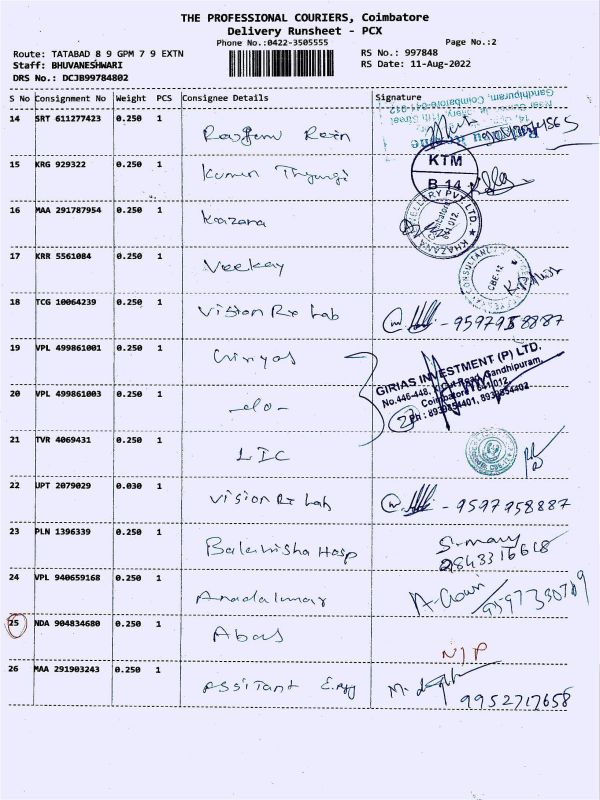 THE PROFESSIONAL COURIERS, Coimbatore
Delivery Runsheet - PCX
Phone No.:0422-3505555
Page No.:2
Route: TATABAD 8 9 GPM 7 9 EXTN
RS No.: 997848
Staff: BHUVANESHWARI
RS Date: 11-Aug-2022
DRS No.: DCJB99784802
S No Consignment No Weight PCS Consignee Details Signature
14 SRT 611277423 0.250 1
Gandhipuram, Coimbatore-641 012
15 KRG 929322 0.250 1 Kumen
KTM
B 14
16 MAA 291787954 0.250 1 Kazana
KHAZANA JEWELLERY PVT. LTD.
Coimbatore
641 012.
17 KRR 5561084 0.250 1 Veekay
CONSULTANCY
CBE-12
18 TCG 10064239 0.250 1 Vision Rx Lab - 9597958887
19 VPL 499861001 0.250 1 Giriyas
GIRIAS INVESTMENT (P) LTD.
No.446-448, Cut Road, Gandhipuram,
Coimbatore - 641 012.
Ph : 8939854401, 8939854402
20 VPL 499861003 0.250 1 -do-
21 TVR 4069431 0.250 1 LIC
22 UPT 2079029 0.030 1 Vision Rx Lab - 9597958887
23 PLN 1396339 0.250 1 Balanisha Hosp S. mary
9843316618
24 VPL 940659168 0.250 1 Anadakumar
25 NDA 904834680 0.250 1 Abas N/P
26 MAA 291903243 0.250 1 Assitant E.
9952717658